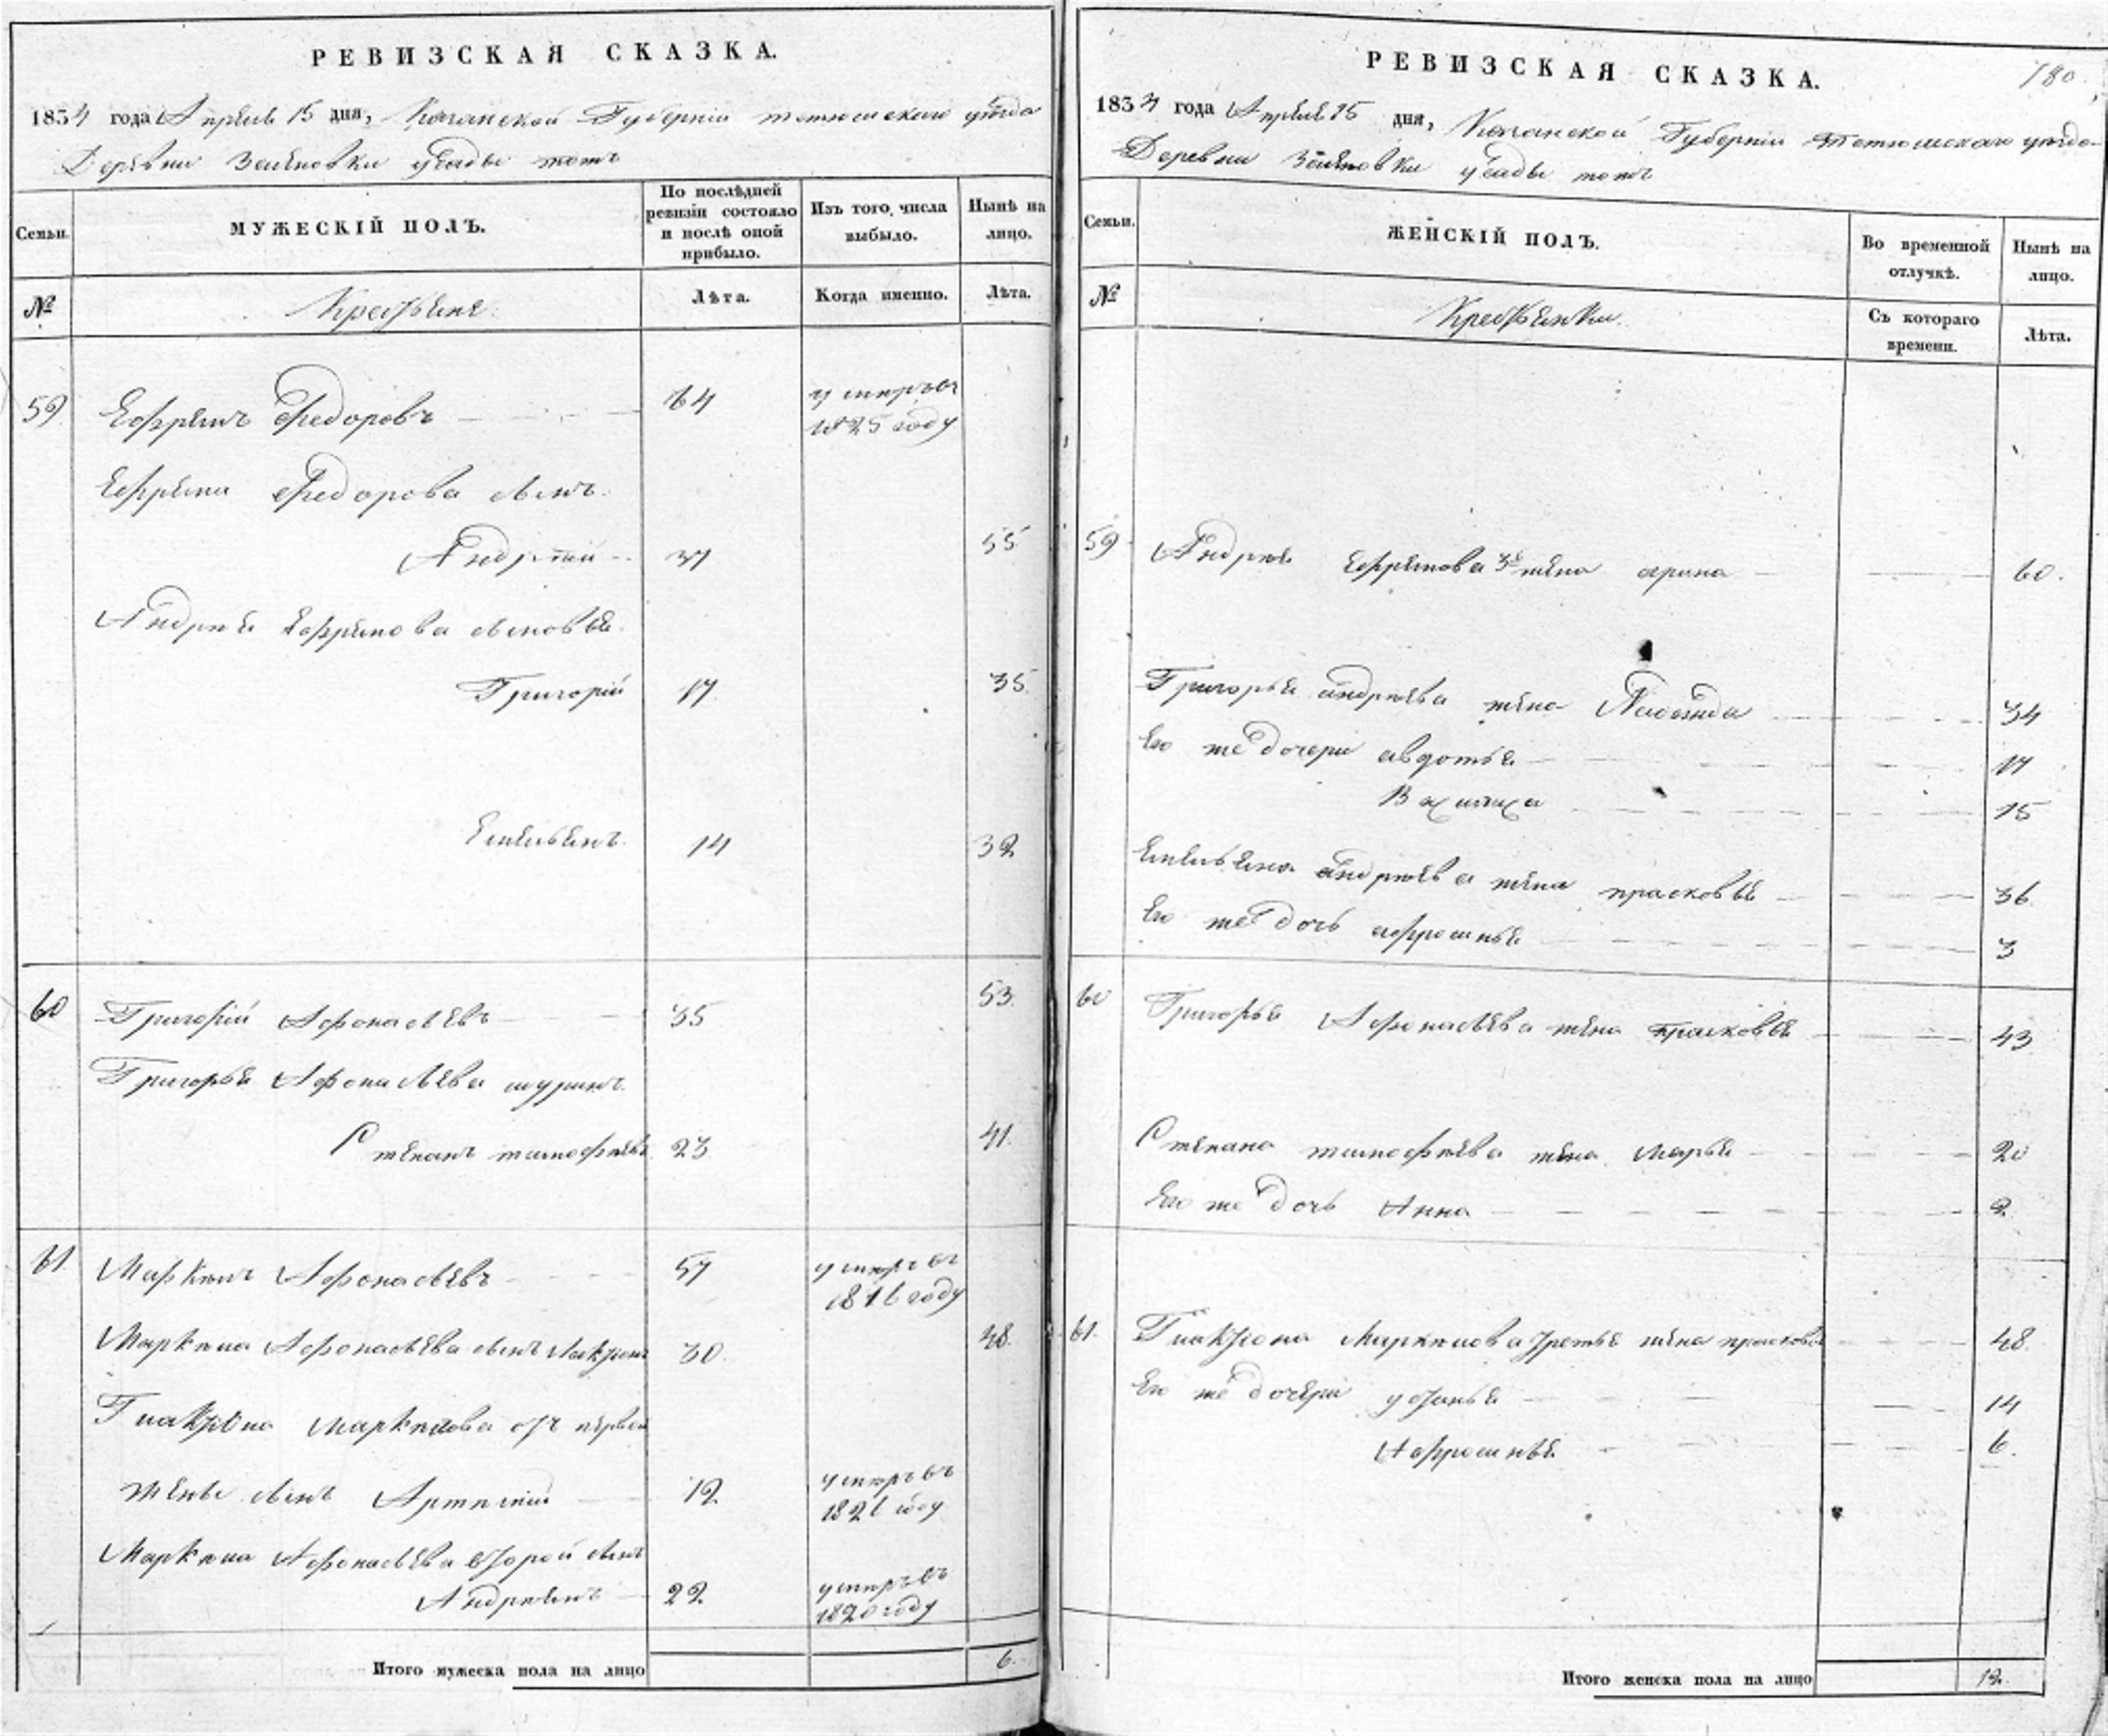 РЕВИЗСКАЯ СКАЗКА.
1834 года Апреля 15 дня, Казанской Губернии тетюшскаго уезда
Деревни усады тожъ
Семьи.
МУЖЕСКІЙ ПОЛЪ.
По послѣдней ревизіи состояло и послѣ оной прибыло.
Изъ того числа выбыло.
Нынѣ на лицо.
№
Крестьяне.
Лѣта.
Когда именно.
Лѣта.
59 Ефремъ Федоровъ 64 умеръ въ
1825 году
Ефрема Федорова сынъ
Андрей 37 55
Андрея Ефремова сыновья
Григорій 17 35
Емельянъ 14 32
60 Григорій Афонасьевъ 35 53
Григорья Афонасьева шуринъ
Степанъ тимофеевъ 23 41
61 Маркелъ Афонасьевъ 57 умеръ въ
1816 году
Маркела Афонасьева сынъ 30 48
Маркелова отъ первой
жены сынъ Артемій 12 умеръ въ
1826 году
Маркела Афонасьева второй сынъ
Андреянъ 22 умеръ въ
1820 году
Итого мужеска пола на лицо 6.
РЕВИЗСКАЯ СКАЗКА.
180.
1834 года Апреля 15 дня, Казанской Губерніи Тетюшскаго уезда
Деревни усады тожъ
Семьи.
ЖЕНСКІЙ ПОЛЪ.
Во временной отлучкѣ.
Нынѣ на лицо.
№
Крестьянки.
Съ котораго времени.
Лѣта.
59 Андрея Ефремова 3я жена арина 60.
Григорья андреева жена Надежда 34
Его же дочери авдотья 17
15
Емельяна андреева жена прасковья 36
Его же дочь афросинья 3
60 Григорья Афонасьева жена прасковья 43
Степана тимофеева жена Марья 20
Его же дочь Анна 2
61. Маркелова третья жена прасковья 48
Его же дочери устинья 14
Афросинья 6.
Итого женска пола на лицо 12.